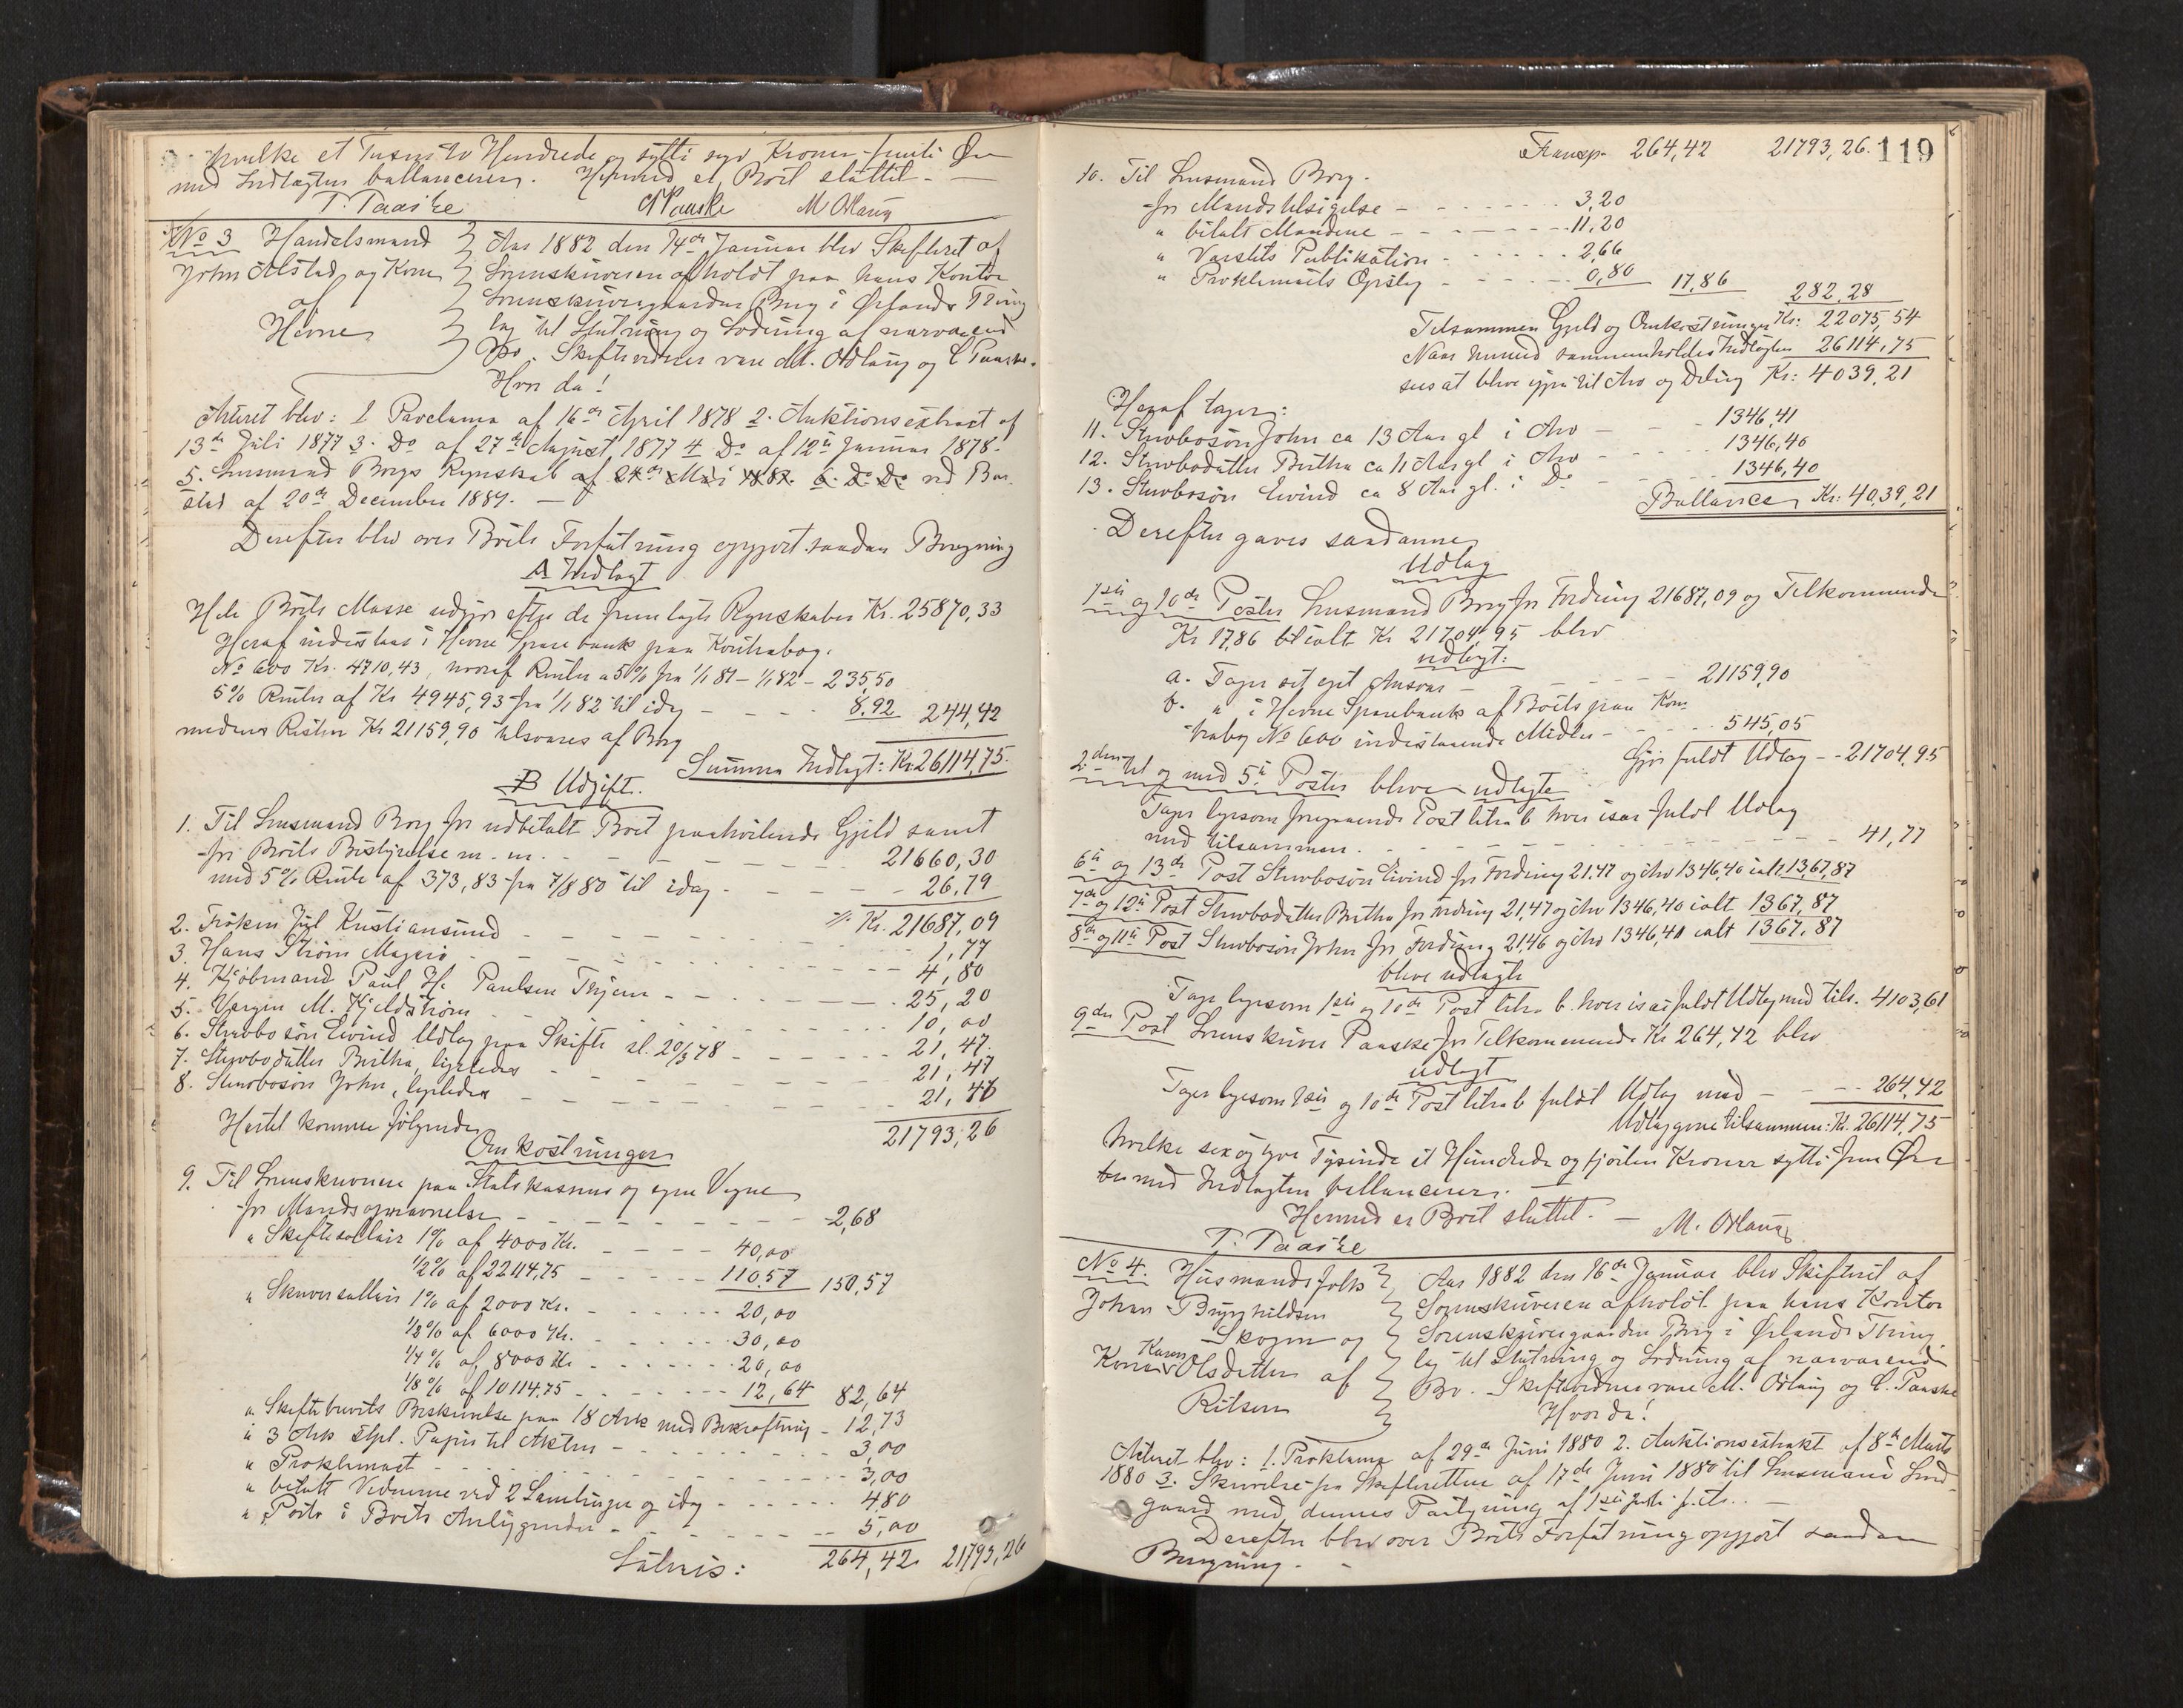 hvilke et Tusind to Hundrede og sytti syv Kroner femti Øre
med Indtægten ballancerer. Hermed er Boet sluttet. —
T. Paaske M Ødlaug
No 3 Handelsmand
John Alstad og Kone
af
Hevne
Aar 1882 den 14de Januar blev Skifteret af
Sorenskriveren afholdt paa hans Kontor
Sorenskrivergaarden Borg i Ørlands Thing
lag til Slutning og Lodning af nærværende
Bo. Skiftevidner vare M. Ødlaug og C Paaske.
Hvor da!
Akteret blev: 1 Proclama af 16de April 1878 2. Auktionsextract af
13de Juli 1877 3. Do af 27de August 1877 4 Do af 12te Januar 1878.
5. Lensmand Borgs Regnskab af 24de Mai 1882. 6. Do Do ved Bor
stad af 20de December 1881. —
Derefter blev over Boets Forfatning opgjort saadan Beregning
A Indtægt
Hele Boets Masse udgjør efter de fremlagte Regnskaber Kr. 25870,33
Heraf indestaar i Hevne Sparebank paa Kontrabog
No 600 Kr. 4710,43, hvoraf Renter a 5% fra 1/1 81 – 1/1 82 – 235,50
5% Renter af Kr 4945,93 fra 1/1 82 til idag - - - 8,92 244,42
medens Resten Kr 21159,90 tilsvares af Borg
Summa Indtægt: Kr. 26114,75.
B Udgift.
1. Til Lensmand Borg for udbetalt Boet paahvilende Gjeld samt
for Boets Bestyrelse m. m. - - - 21660,30
med 5% Rente af 373,83 fra 7/8 80 til idag - - - 26,79
Kr. 21687,09
2. Frøken Juel Kristiansund - - - 1,77
3. Hans Strøm Magerø - - - 4,80
4. Kjøbmand Paul H. Paulsen Thjem - - - 25,20
5. Værgen M. Kjeldstrøm - - - 10,00
6. Stervbosøn Eivind Udlæg paa Skifte sl. 20/3 78 - - - 21,47
7. Stervbodatter Beritha, ligeledes - - - 21,47
8. Stervbosøn John, ligeledes - - - 21,46
21793,26
Hertil komme følgende
Omkostninger
9. Til Sorenskriveren paa Statskassens og egne Vegne
for Mandsopnævnelse - - - 2,68
" Skiftesallair 1% af 4000 Kr. - - - 40,00
1/2% af 22114,75 - - - 110,57 150,57
" Skriversallair 1% af 2000 Kr. - - - 20,00
1/2% af 6000 Kr. - - - 30,00
1/4% af 8000 Kr - - - 20,00
1/8% af 10114,75 - - - 12,64 82,64
" Skiftebrevets Beskrivelse paa 18 Ark med Bekræftning - 12,73
" 3 Ark stpl. Papir til Akten - - - 3,00
" Proklamaet - - - 3,00
" betalt Vidnerne ved 2 Samlinger og idag - - - 4,80
" Porto i Boets Anliggender - - - 5,00
Lateris: 264,42 21793,26
Transp. 264,42 21793,26. 119
10. Til Lensmand Borg.
for Mandstilsigelse - - - 3,20
" betalt Mændene - - - 11,20
" Varsels Publikation - - - 2,66
" Proklamaets Opslag - - - 0,80 17,86 282,28
Tilsammen Gjeld og Omkostninger Kr: 22075,54
Naar hermed sammenholdes Indtægten 26114,75
sees at blive igjen til Arv og Deling Kr: 4039,21
Heraf tager:
11. Stervbosøn John ca 13 Aar gl i Arv - - - 1346,41
12. Stervbodatter Beritha ca 11 Aar gl i Arv - - - 1346,40
13. Stervbosøn Eivind ca 8 Aar gl. i Do - - - 1346,40
Ballance Kr: 4039,21
Derefter gaves saadanne
Udlæg
1ste og 10de Poster Lensmand Borg for Fordring 21687,09 og Tilkommende
Kr 17,86 ialt Kr 21704,95 blev
udlagt:
a. Tager sit eget Ansvar - - - 21159,90
b. " i Hevne Sparebank af Boets paa Kon
trabog No 600 indestaaende Midler - - - 545,05
Gjør fuldt Udlæg - - 21704,95
2den til og med 5te Poster bleve udlagte
Tager ligesom foregaaende Post litra b hver især fuldt Udlæg
med tilsammen. - - - 41,77
6te og 13de Post Stervbosøn Eivind for Fordring 21,47 og Arv 1346,40 ialt 1367,87
7de og 12te Post Stervbodatter Beritha for Fordring 21,47 og Arv 1346,40 ialt 1367,87
8de og 11te Post Stervbosøn John for Fordring 21,46 og Arv 1346,41 ialt 1367,87
bleve udlagte
Tager ligesom 1ste og 10de Post litra b. hver især fuldt Udlæg med tils. 4103,61
9de Post Sorenskriver Paaske for Tilkommende Kr 264,42 blev
udlagt
Tager ligesom 1ste og 10de Post litra b fuldt Udlæg med - - - 264,42
Udlæggene tilsammen: Kr. 26114,75
hvilke sex og tyve Tusinde et Hundrede og fjorten Kroner sytti fem Øre
bemed Indtægten ballancerer. —
Hermed er Boet sluttet. —
T. Paaske M. Ødlaug
No 4. Husmandsfolk
Johan Brynhildsen
Skogen og
Kone Karen Olsdatter af
Rilsen
Aar 1882 den 16de Januar blev Skifteret af
Sorenskriveren afholdt paa hans Kontor
Sorenskrivergaarden Borg i Ørlands Thing
lag til Slutning og Lodning af nærværende
Bo. Skiftevidner vare M. Ødlaug og C. Paaske
Hvor da!
Akteret blev: 1. Proklama af 29de Juni 1880 2. Auktionsextrakt af 8de Marts
1880 3. Skrivelse fra Skifteretten af 17de Juni 1880 til Lensmand Lund
gaard med dennes Paategning af 1ste Juli s. A. —
Derefter blev over Boets Forfatning opgjort saadan
Beregning. -